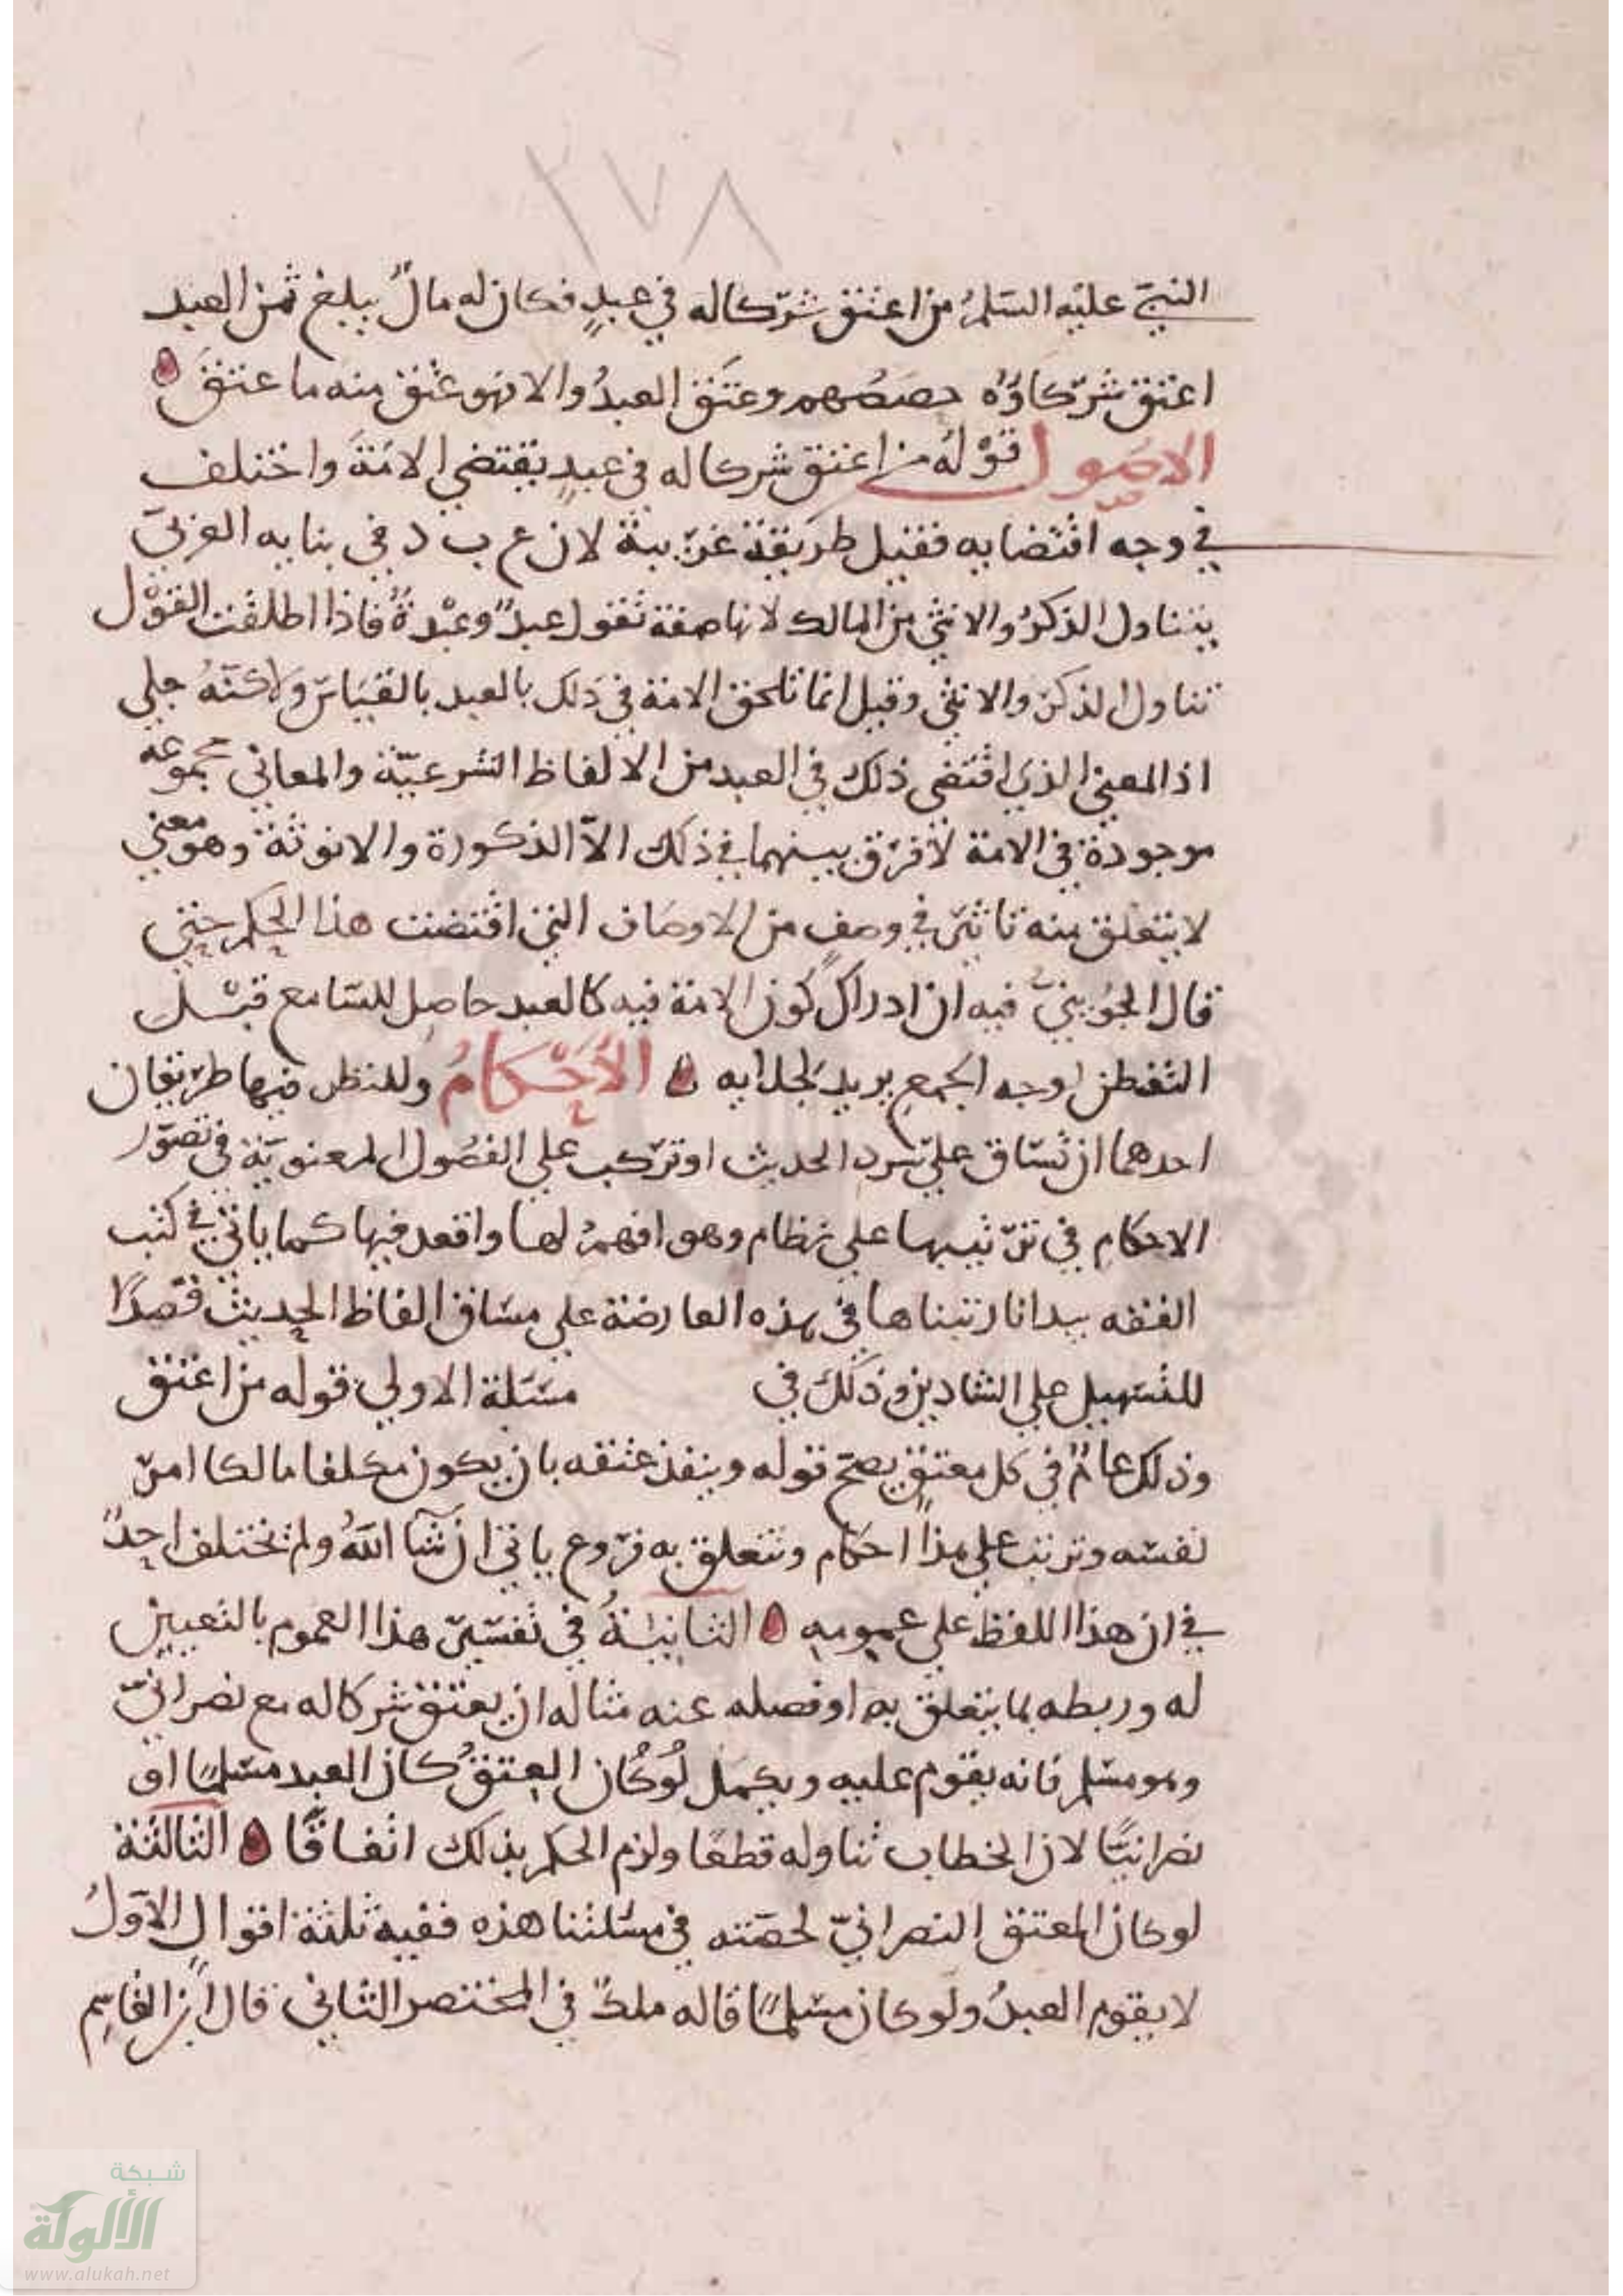 ٢٧٨
النبيّ عليه السّلمُ من اعتق شرّكا له في عبدٍ فكان له مالٌ يبلغ ثمن العبد
اعتق شرّكاؤه حصصهم وعتَق العبدُ والا فهو عتق منه ما عتقَ ه
الاصول قوْله من اعتق شركا له في عبدٍ يقتضي الامَةَ واختلف
في وجه اقتضايه فقيل طريقة عرّبية لان ع ب د في بنايه العربيّ
يتناول الذكرُ والانثي من المالك لانها صفة تقول عبدٌ وعبْدةٌ فاذا اطلقت القوْل
تناول الذكرّ والانثي وقيل انما تلحق الامة في ذلك بالعبد بالقيَاسّ ولاكنّهُ جلي
اذ المعني الذي اقتضي ذلك في العبد من الالفاظ الشرعيّة والمعاني مجموعه
موجودة في الامة لا فرّق بينهما في ذلك الاّ الذكورة والانوثة وهو معني
لا يتعلق منه تاثيرّ في وصفٍ من الاوصَاف التي اقتضت هذا الحكم حتي
قال الجُوينيّ فيه ان ادراك كون الامة فيه كالعبد حاصِل للسّامع قبْل
التفطن لوجه الجمع يريد لجلايه ه الأحْكامُ وللنظر فيها طرّيقان
احدهما ان تسّاق علي سرد الحديث او ترّكب علي الفصُول المعنويّة في تصوّر
الاحكام في ترّتيبها علي نظام وهو افهمُ لها واقعد فيها كما ياتي في كتب
الفقه بيد انا رتبناها في هذه العارضة علي مسَاق الفاظ الحديث قصدًا
للتسّهيل علي الشادين وذلك في مسّئلة الاولي قوله من اعتق
وذلك عامٌ في كل معتق يصحّ قوله وينفذ عتقه بان يكون مكلفا مالكا امرّ
نفسّه وترتب علي هذا احكام وتتعلق به فرّوع ياتي ان شآ اللهُ ولم يختلف احدٌ
في ان هذا اللفظ علي عمومه ه الثانيَةُ في تفسّيرّ هذا العموم بالتعيين
له وربطه بما يتعلق به او فصله عنه مثاله ان يعتق شركا له مع نصرانيّ
وهو مسّلم فانه يقوم عليه ويكمل لوْ كان المعتقُ كان العبد مسّلمًا او
نصرانيًّا لان الخطاب تناوله قطعًا ولزم الحكم بذلك اتفاقًا ه الثالثة
لو كان المعتق النصرانيّ لحصّته في مسّئلتنا هذه ففيه ثلثة اقوالٍ الاوّلُ
لا يقوم العبدُ ولو كان مسّلمًا قاله ملكٌ في المختصر الثاني قال ابن القاسِم
شبكة
الألوكة
www.alukah.net